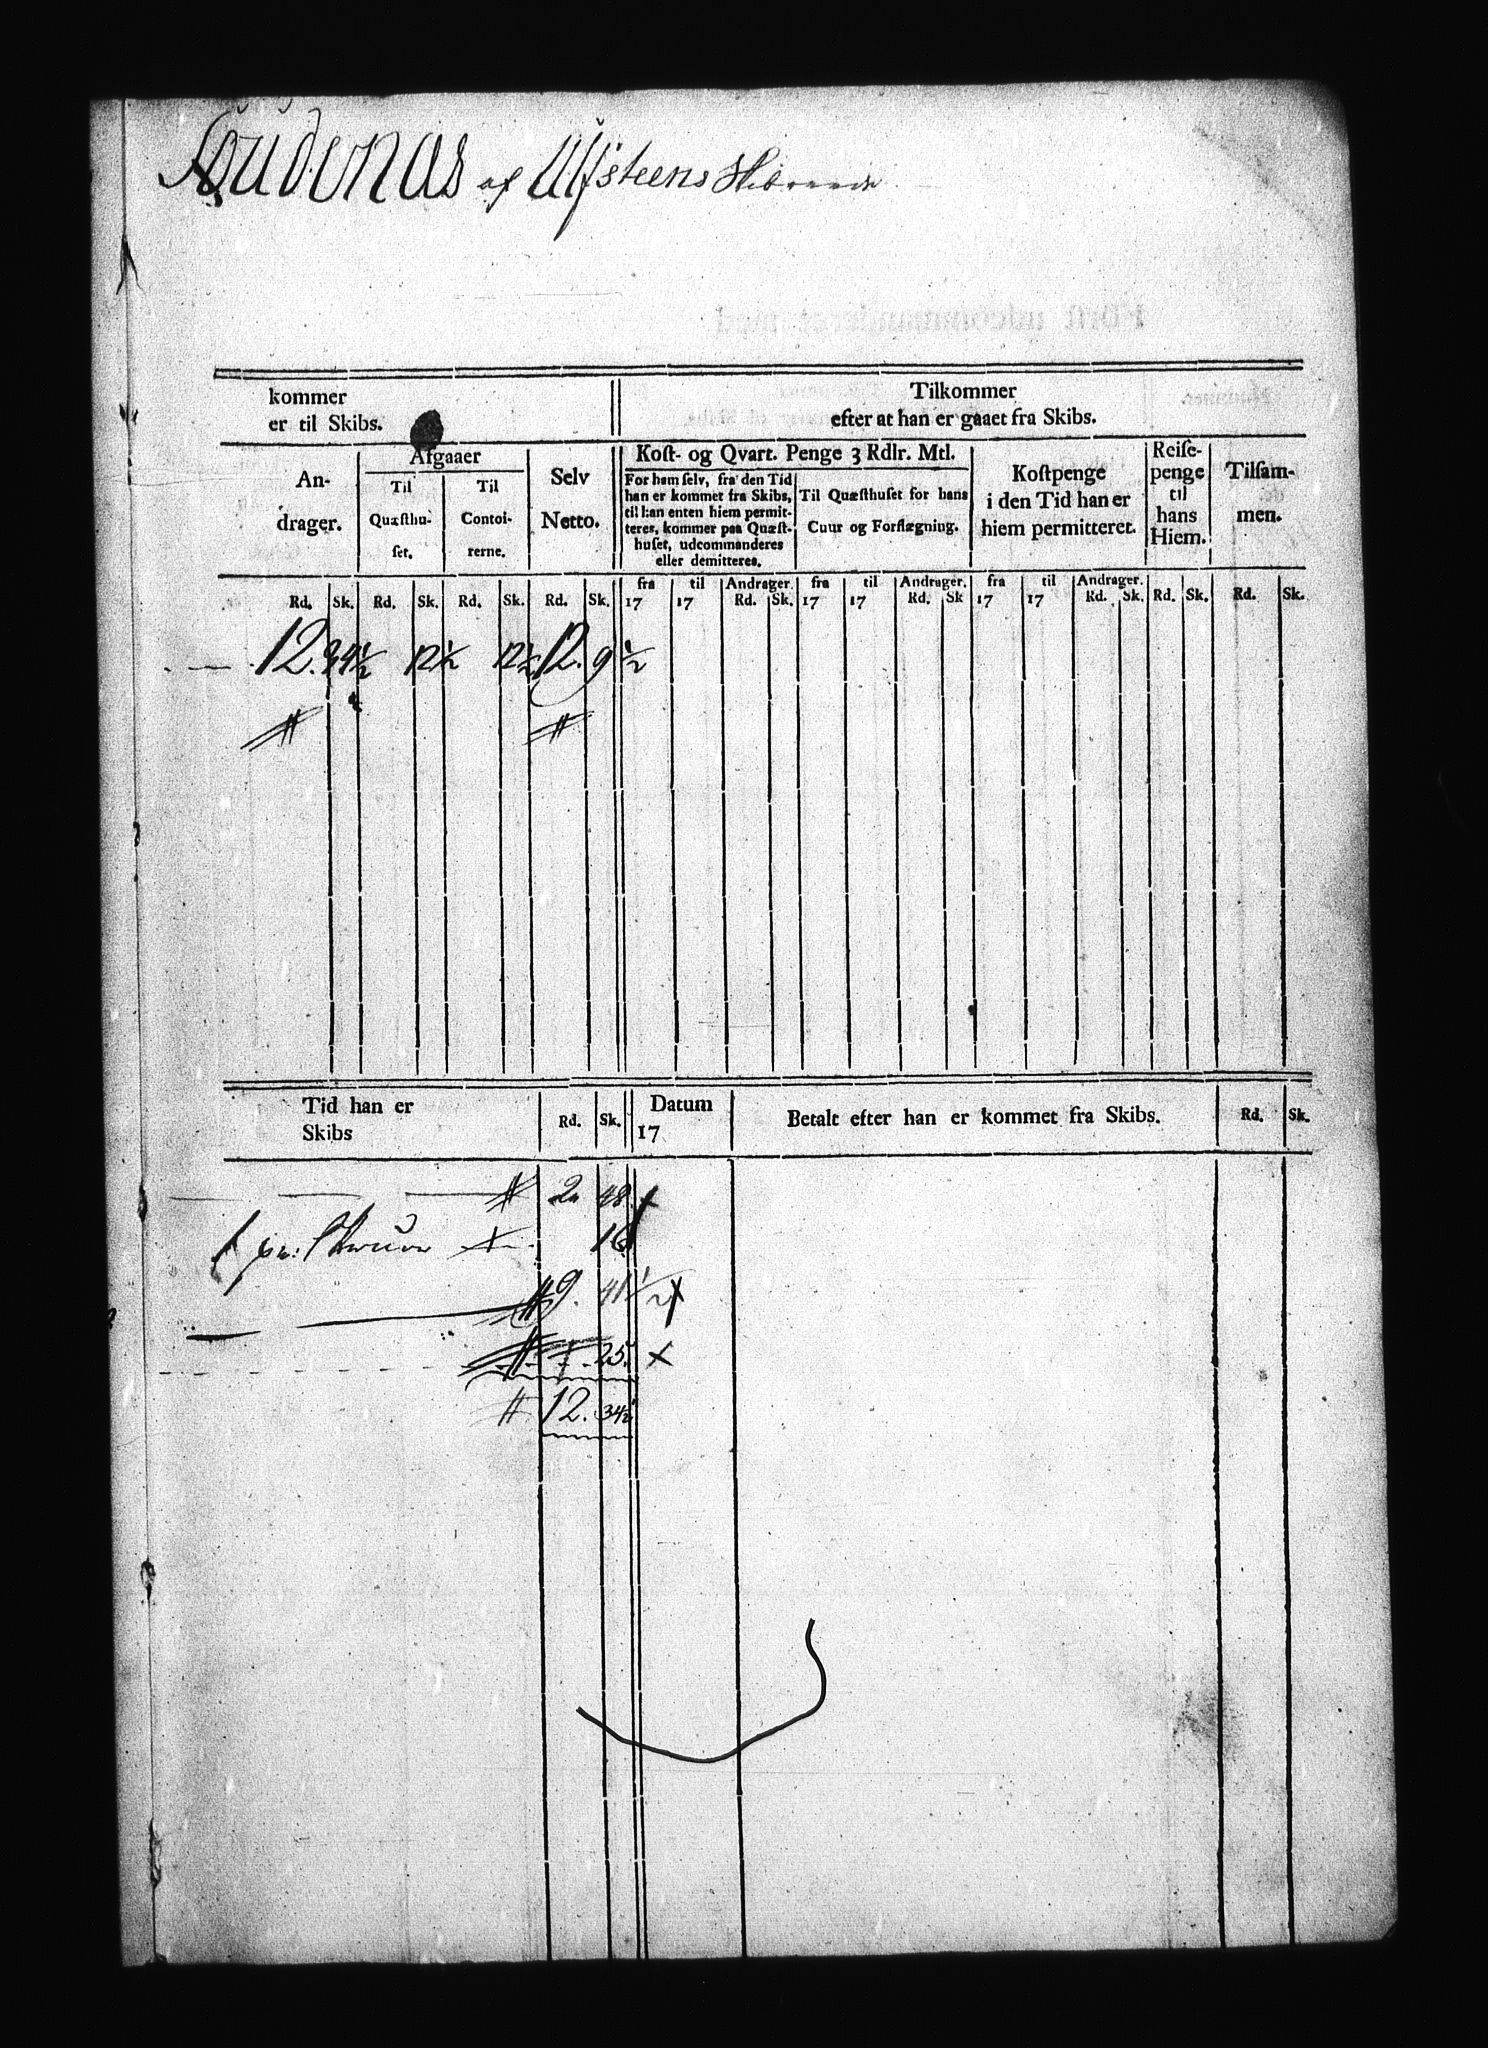 af Ulfsteens
kommer
er til Skibs.
Tilkommer
efter at han er gaaet fra Skibs.
An-
drager.
Afgaaer
Til
Quæsthu-
set.
Til
Contoi-
rerne.
Selv
Netto.
Kost- og Qvart. Penge 3 Rdlr. Mtl.
For ham selv, fra den Tid
han er kommet fra Skibs,
til han enten hiem permit-
teres, kommer paa Quæst-
huset, udcommanderes
eller demitteres.
Til Quæsthuset for hans
Cuur og Forflægning.
Kostpenge
i den Tid han er
hiem permitteret.
Reise-
penge
til
hans
Hiem.
Tilsam-
men.
fra til Andrager. fra til Andrager. fra til Andrager.
Rd. Sk. Rd. Sk. Rd. Sk. Rd. Sk. 17 17 Rd. Sk. 17 17 Rd. Sk 17 17 Rd. Sk. Rd. Sk. Rd. Sk.
12. 34½ 12½ 12½ 12. 9½
Tid han er
Skibs
Rd. Sk.
Datum
17
Betalt efter han er kommet fra Skibs.
Rd. Sk.
2 48
16
9. 41½
25
12. 34½